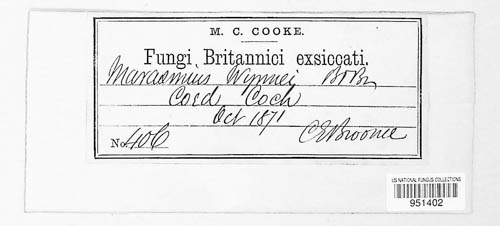 M. C. COOKE.
Fungi Britannici exsiccati.
Marasmius Wynnei B & Br
Coed Coch
Oct 1871
No. 406 C E Broome
US NATIONAL FUNGUS COLLECTIONS
951402